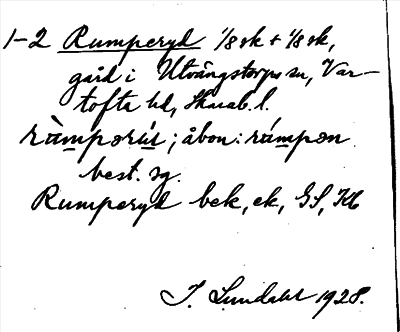 1-2 Rumperyd 1/8 sk + 1/8 sk,
gård i Utvängstorps sn, Var-
tofta hd, Skarab. l.
ràmpərı́ı ; åbon: rámpən
best. sg.
Rumperyd bek, ek, GS, Kb
I. Lundahl 1928.